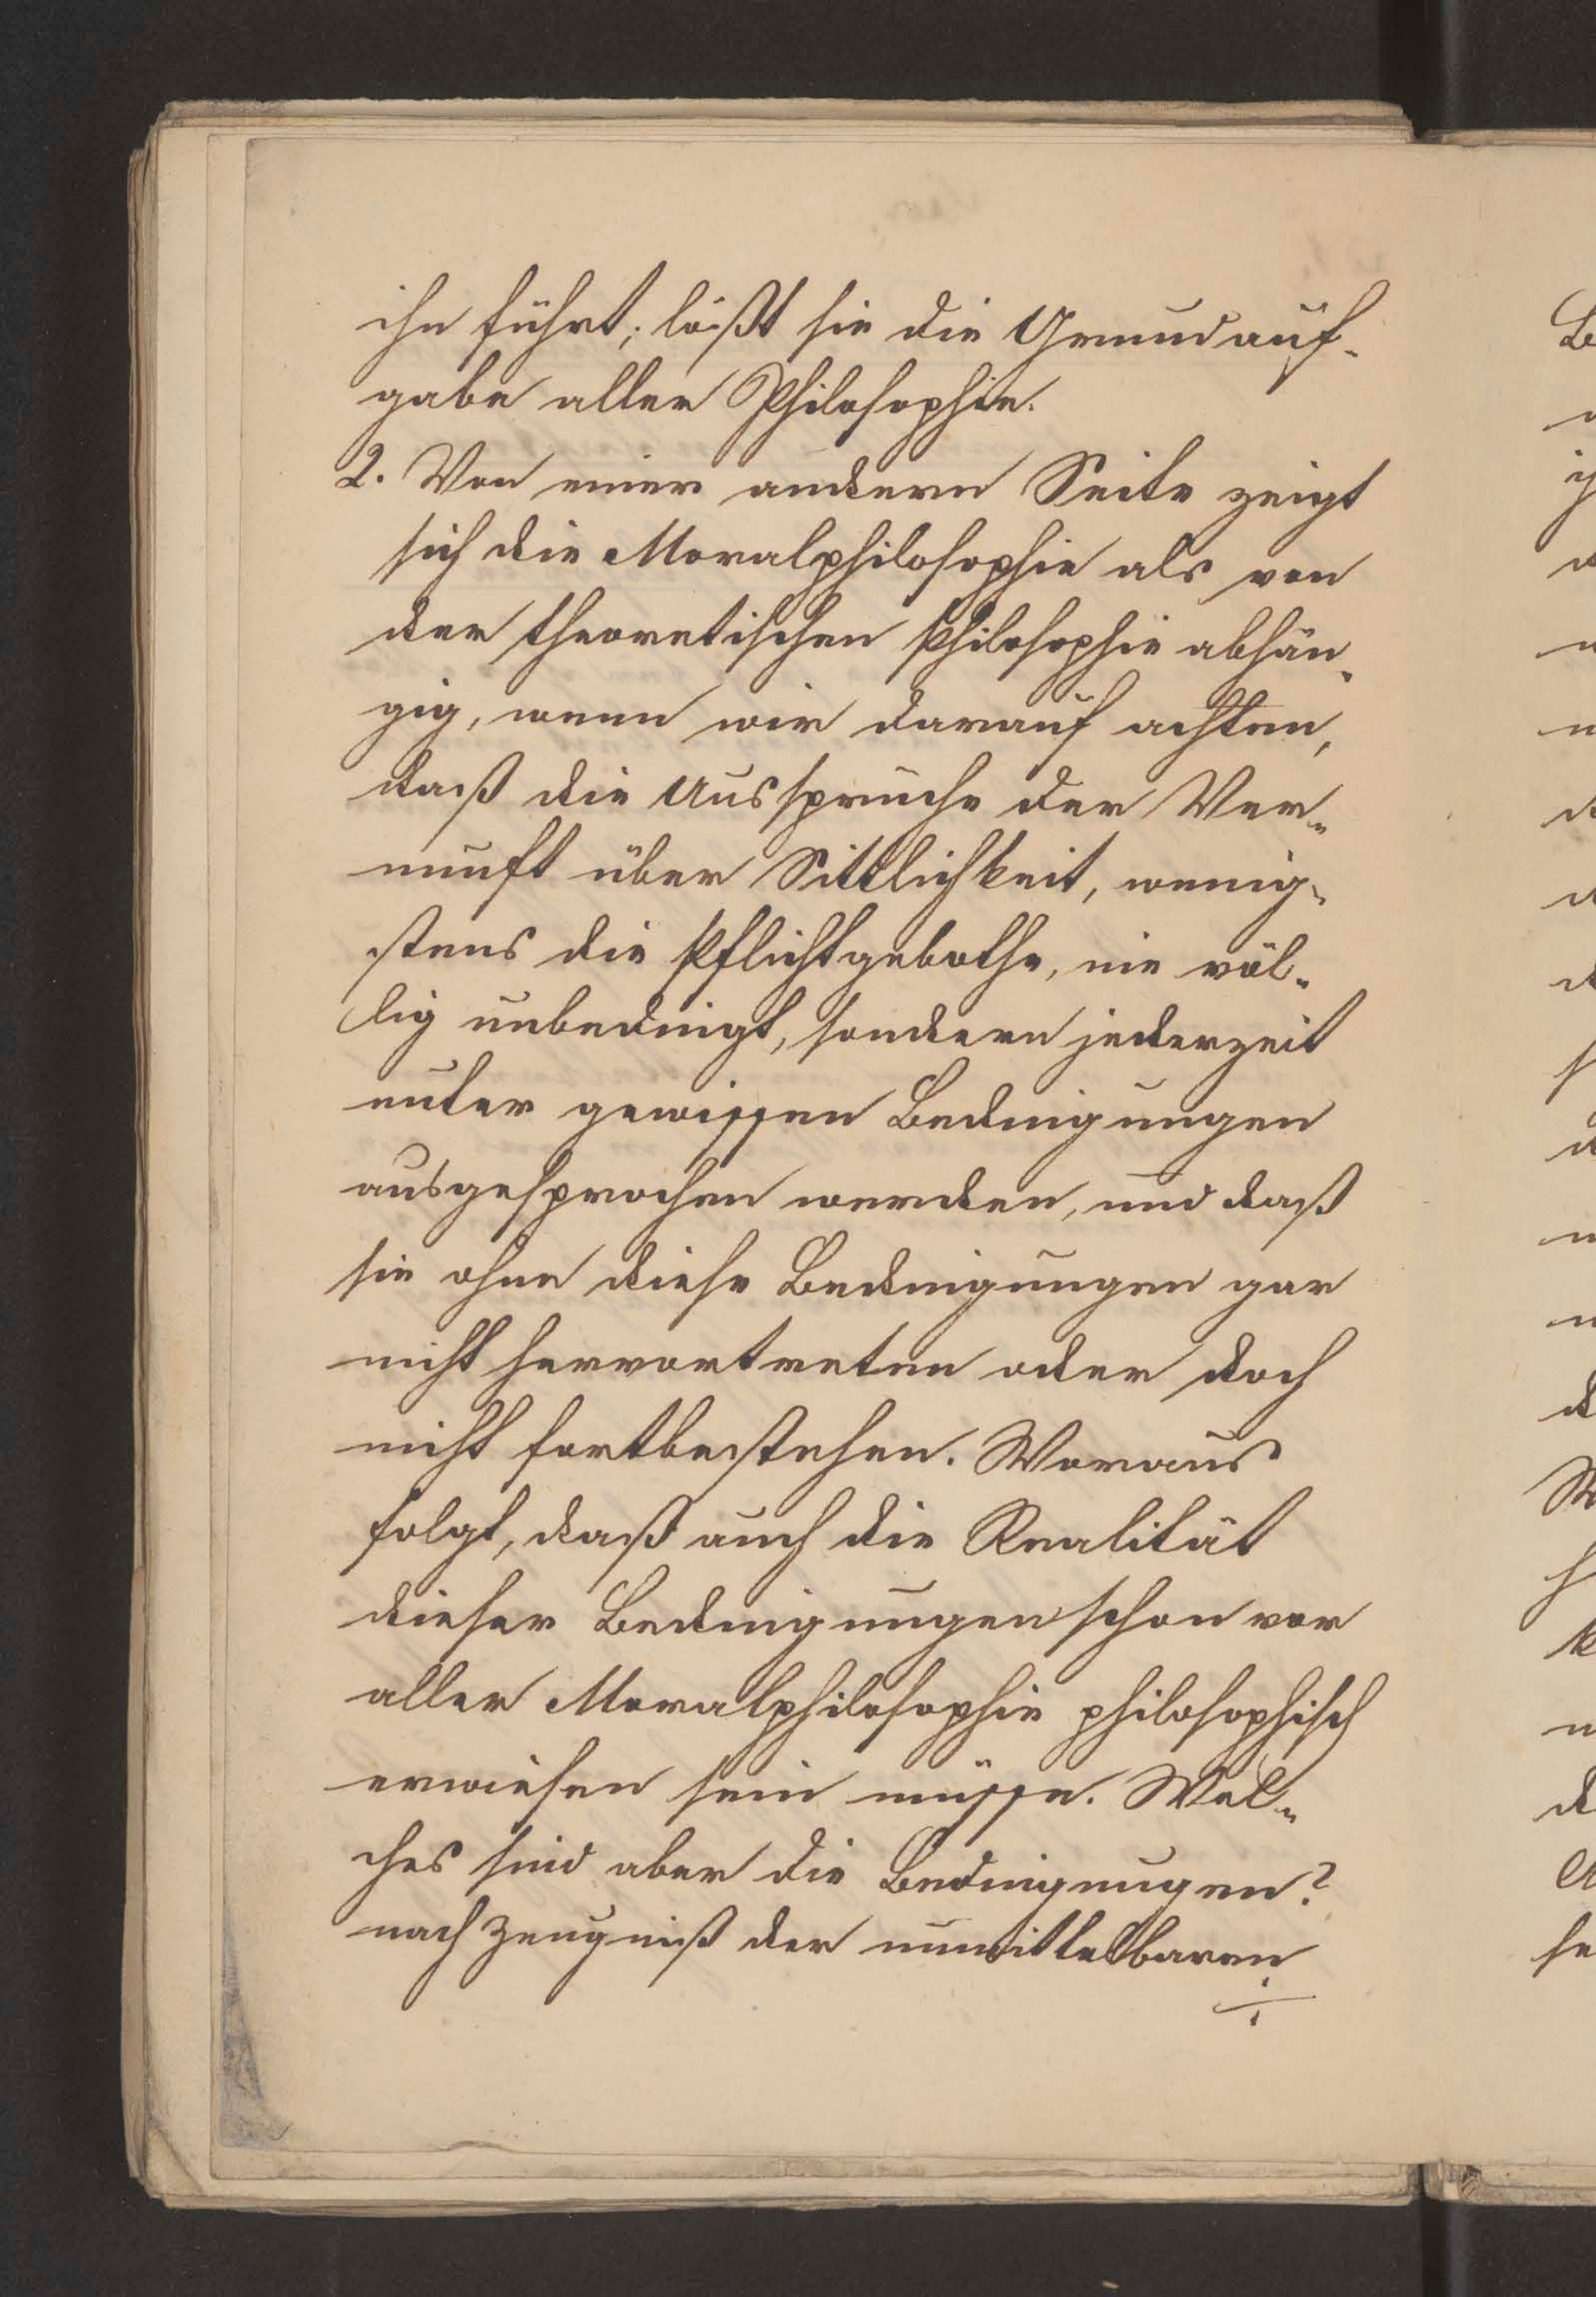 ihn führt; lößt sie die Grundauf-
gabe aller Philosophie.
2. Von einer andern Seite zeigt
sich die Moralphilosophie als von
der theoretischen Philosophie abhän-
gig, wenn wir darauf achten,
daß die Aussprüche der Ver-
nunft über Sittlichkeit, wenig-
stens die Pflichtgebothe, nie völ-
lig unbedingt, sondern jederzeit
unter gewissen Bedingungen
ausgesprochen werden, und daß
sie ohne diese Bedingungen gar
nicht hervortreten oder doch
nicht fortbestehen. Woraus
folgt, daß auch die Realität
dieser Bedingungen schon vor
aller Moralphilosophie philosophisch
erwiesen sein müsse. Wel-
ches sind aber die Bedingungen?
nach Zeugniß der unmittelbaren